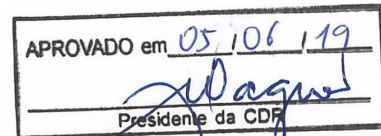 APROVADO em 05/06/19
Wagner
Presidente da CDR